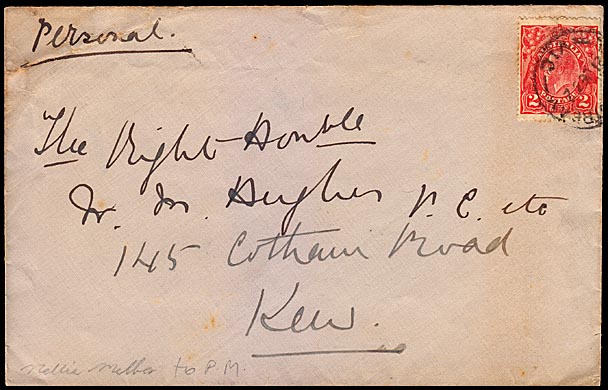 Personal.
AUSTRALIA
2 2
The Right Honble
W. M. Hughes P.C. etc
145 Cotham Road
Kew.
Nellie Melba to P.M.